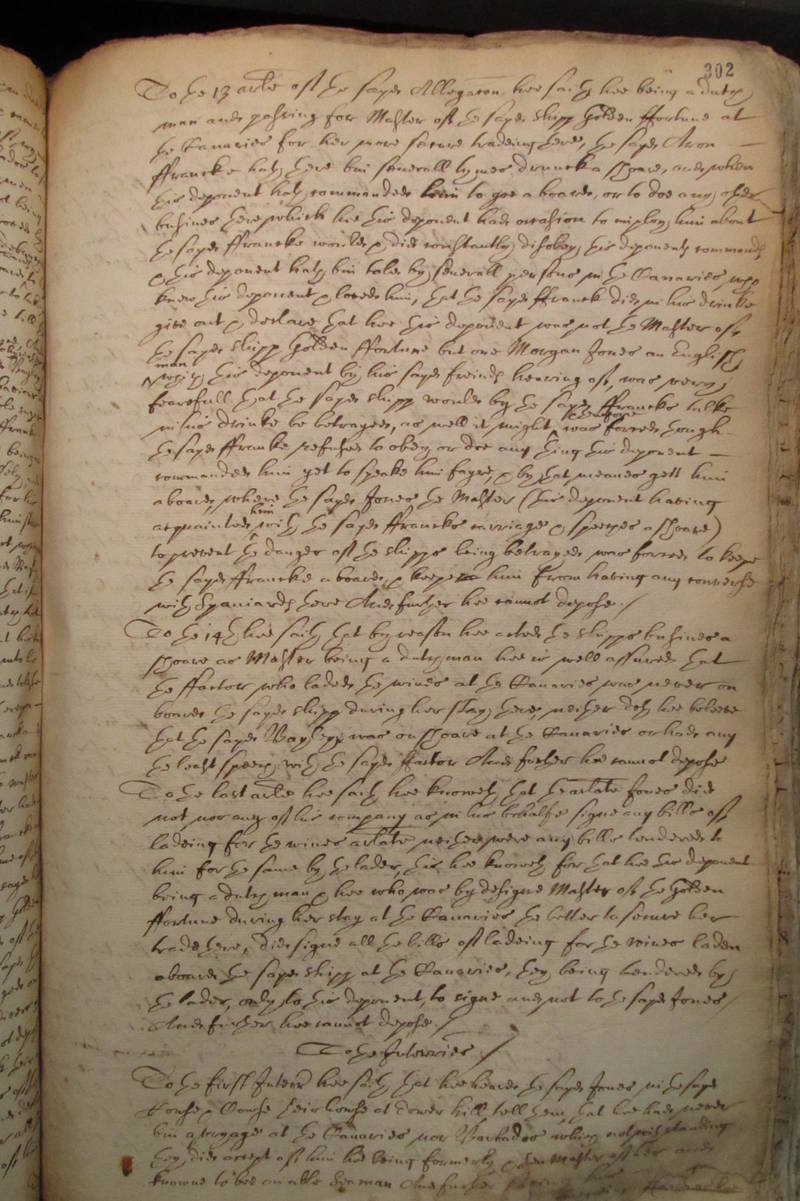 302
To the 13 arlte of the sayd Allegacon hee saith hee being a dutch
man and passing for Master of the sayd shipp Golden ffortune at
the Canaries for her more secure tradeing there, the sayd Aron
ffrancke hath there bin severall tymes druncke a shoare, and when
this deponent hath commanded him to goe aboard, or to doe any other
busines there which hee this deponent had occasion to imploy him about
the sayd ffrancke would & did constantly disobey this deponents commands
& this deponent hath bin told by severall persons in the Canaries who
knew this deponent & loved him, that the sayd ffranck did in his drinke
give out & declare that hee this deponent was not the Master of
the sayd shipp Golden ffortune but one Morgan Jones an English
man
which this deponent by his sayd freinds hearing of, was very
fearefull that the sayd shipp would by the sayd ffrancks talke
in his drinke be betrayed, as well it might, was forced though
the sayd ffranke refused to obey or doe any thing this deponent
commanded him yet to speake him fayre, & by that meanes gett him
aboard, where the sayd Jones the Master (this deponent having
acquainted him with the sayd ffrancks carriage & speeches a shoare)
to prevent the danger of the shipps being betrayed was forced to keepe
the sayd ffrancke aboard & keepe him from having any converse
with Spaniards there And further hee cannot depose./
To the 14th hee saith that by reason hee acted the shipps busines a
shoare as Master being a dutchman hee is well assured that
the ffactor who laded the wines at the Canaries was never on
board the sayd shipp during her stay there, neither doth hee beleeve
that the sayd was on shoare at the Canaries or had any
the least speech with the sayd ffactor And further hee cannot depose
To the last arlte hee saith hee knoweth that the arlate Jones did
not nor any of his company as in his behalfe signe any bills of
ladeing for the wines arlate neither were any bills tendered to
him for the same by the lader, this hee knoweth for that hee this deponent
being a dutchman & hee who was by designe Master of the Golden
ffortune during her stay at the Canaries the better to secure her
trade there, did signe all the bills of ladeing for the wines laden
aboard the sayd shipp at the Canaries, they being tendered by
the lader, only to this deponent to signe and not to the sayd Jones
And further hee cannot depose./
To the Interries./
To the first Interr hee saith that hee heard the sayd Jones in the sayd
their house at Tower hill, tell them, that hee had never
bin a voyage at the Canaries nor Barbados notwithstanding
they did accept of him hee being formerly Master of her and
knowne to bee an able seaman And further